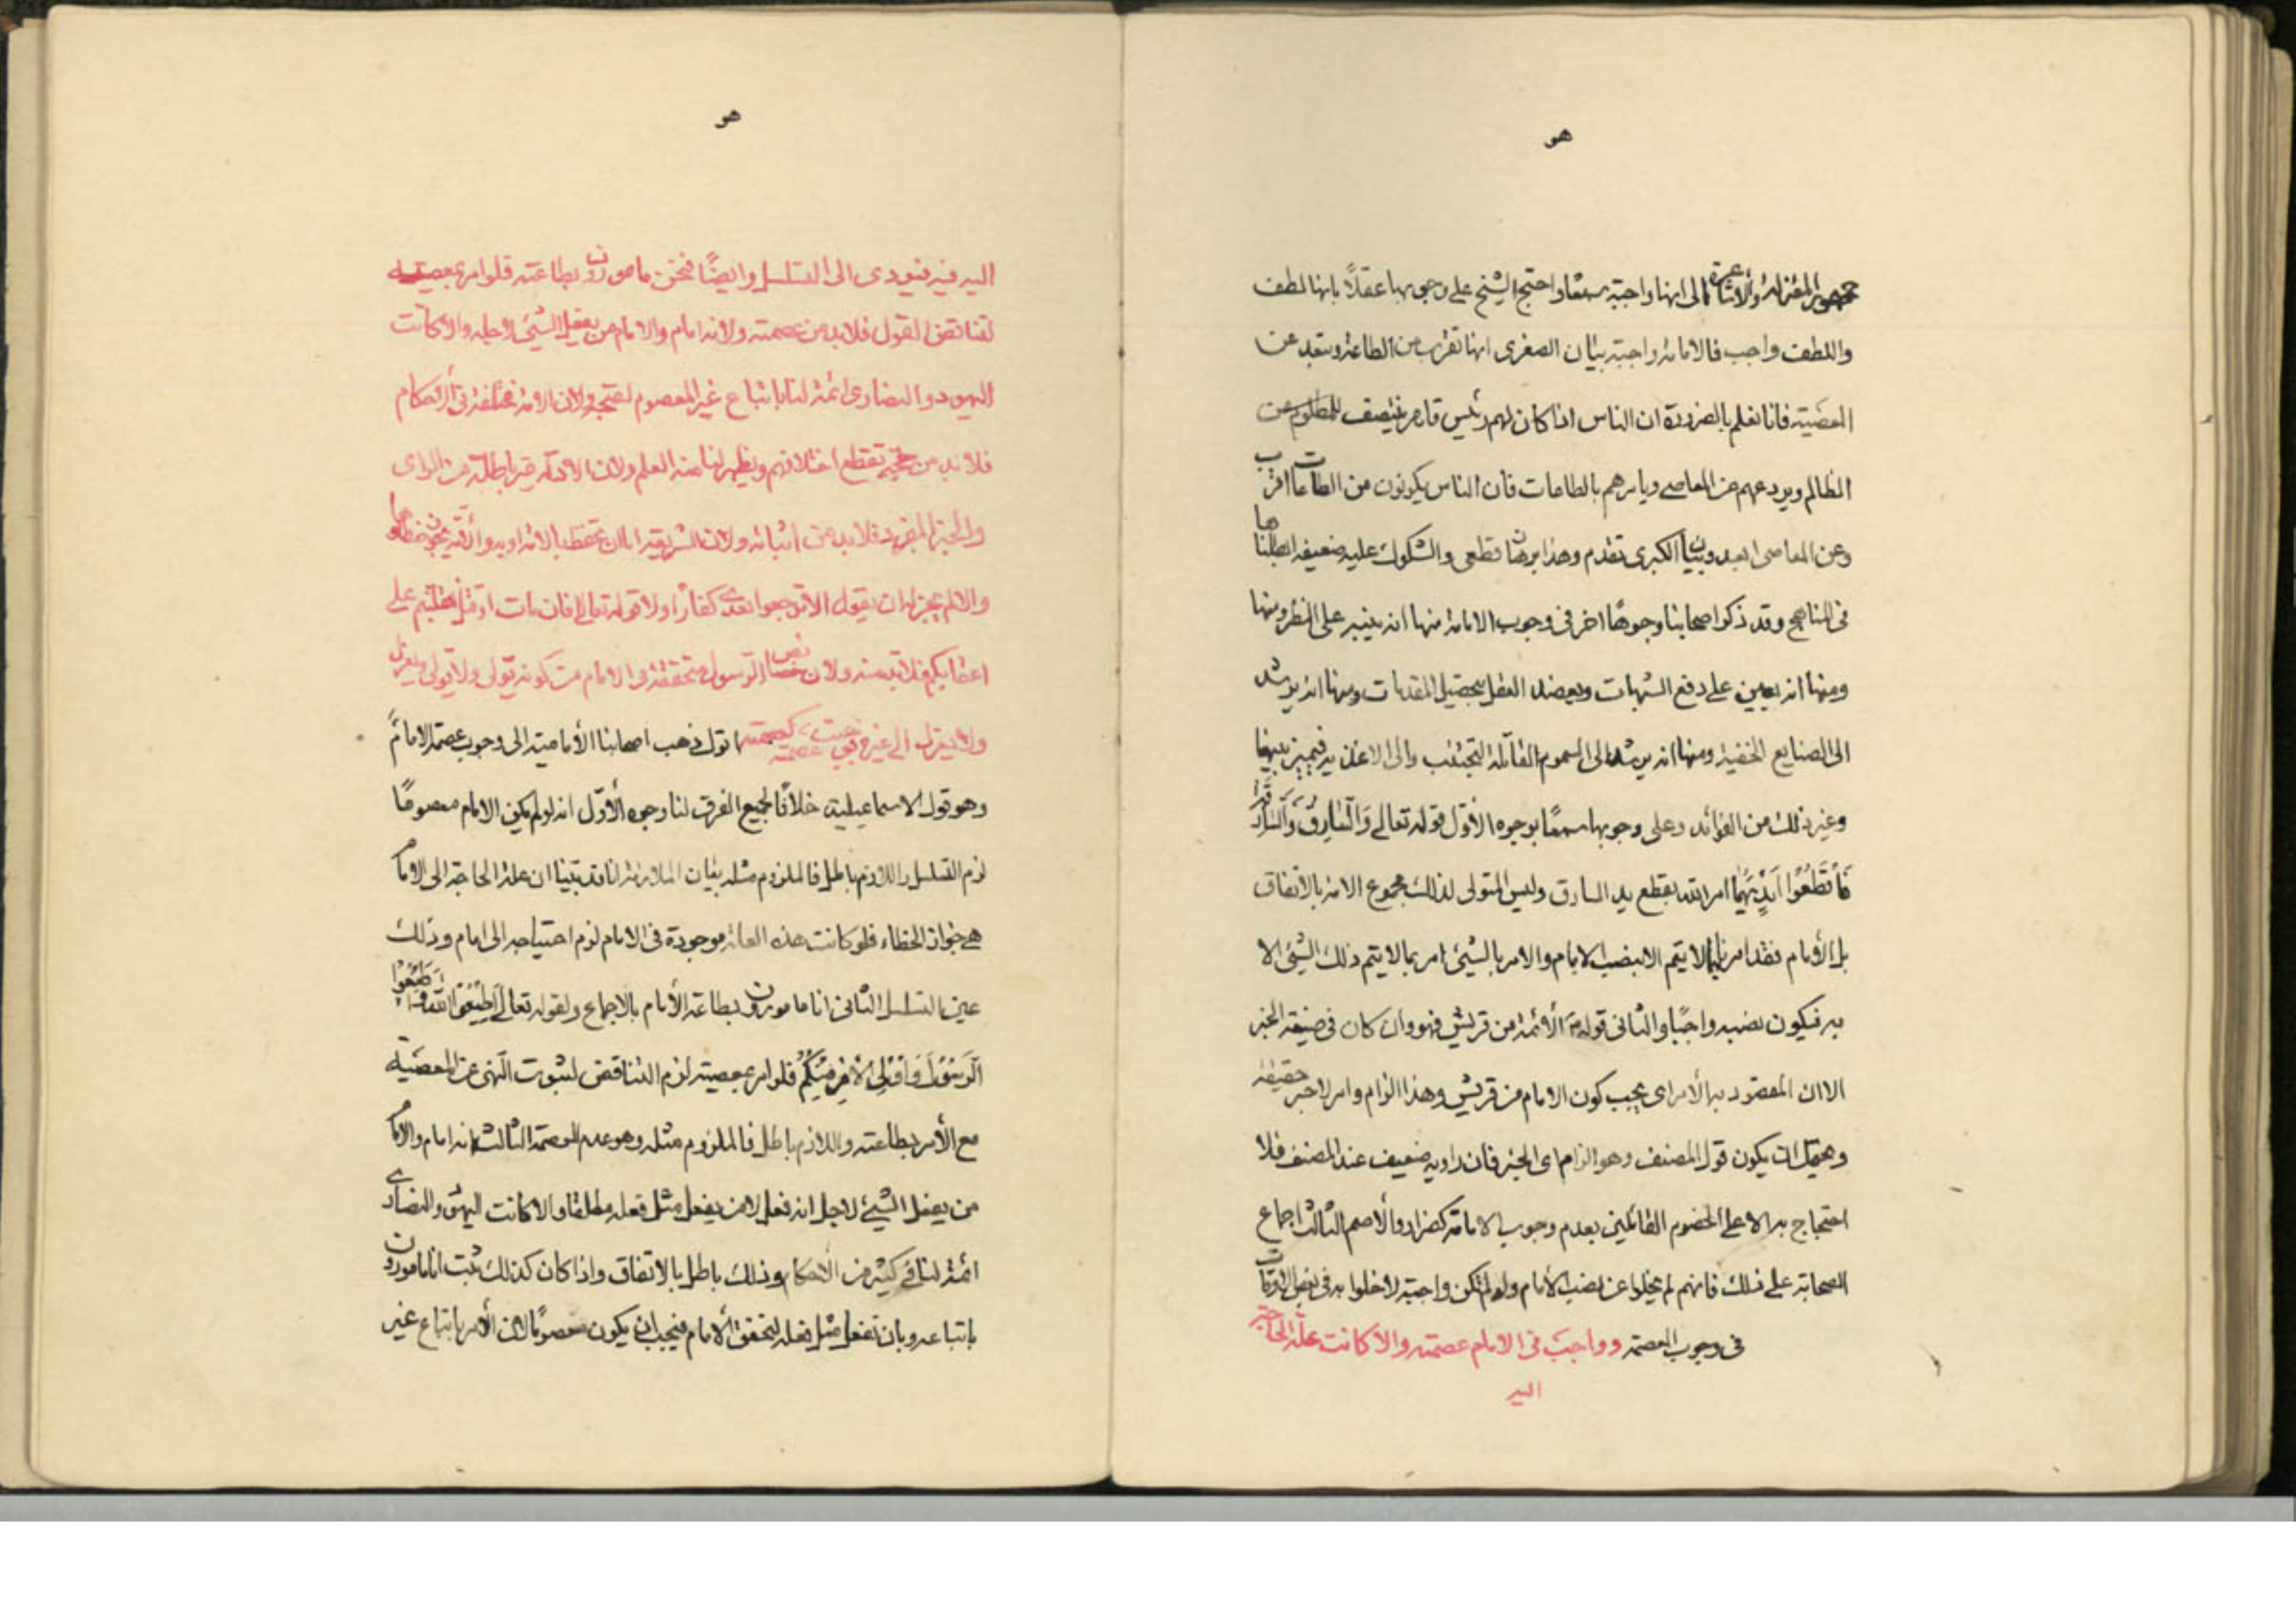 هو
جمهور المعتزلة والأشاعرة الى انها واجبة سمعا واحتج الشيخ على وجوبها عقلاً بانها لطف
واللطف واجب فالامامة واجبة بيان الصغرى انها تقرب من الطاعة وتبعد عن
المعصية فانا نعلم بالضرورة ان الناس اذا كان لهم رئيس قاهر ينتصف للمظلوم من
الظالم ويردعهم عن المعاصي ويامرهم بالطاعات فان الناس يكونون من الطاعات اقرب
وعن المعاصي ابعد وبيان الكبرى تقدم وهذا برهان قطعي والشكوك عليه ضعيفه ابطلناها
في المناهج وقد ذكر اصحابنا وجوهًا اخر في وجوب الامامة منها انه ينبه على النظر ومنها
ومنها انه يعين على دفع الشبهات ويعضد العقل بتحصيل المقدمات ومنها انه يرشد
الى الصنايع الخفية ومنها انه يرشد الى السموم القاتلة لتجتنب والى الاغذيه فيميز بينهما
وغير ذلك من الفوائد وعلى وجوبها سمعًا بوجوه الأوّل قوله تعالى وَالسَّارِقُ وَالسَّارِقَةُ
فَاقْطَعُوا أَيْدِيَهُمَا امر الله بقطع يد السارق وليس المتولى لذلك مجموع الامة بالاتفاق
بل الأمام فقد امرنا بما لا يتم الا بنصب الامام والامر بالشيئ امر بما لا يتم ذلك الشيئ الا
به فيكون نصبه واجبًا والثاني قوله ع الأئمة من قريش فهو وان كان في صيغة الخبر
الا ان المقصود به الأمر اي يجب كون الامام من قريش وهذا الزام وامر لا خبر حقيقة
ويحتمل ان يكون قول المصنف وهو الزام اي الخبر فان راويه ضعيف عند المصنف فلا
احتجاج به الا على الخصوم القائلين بعدم وجوب الامامة كضرار والأصم الثالث اجماع
الصحابة على ذلك فانهم لم يخلوا عن نصب الأمام ولو لم تكن واجبة لاخلوا به في بعض الاوقات
في وجوب العصمة وواجب في الامام عصمته والا كانت علة الحاجة
اليه
هو
اليه فيه فيودى الى التسلسل وايضًا فنحن مامورون بطاعته فلو امر بمعصيته
لتناقض القول فلابد من عصمته ولانه امام والامام من يفعل الشيئ لاجله والا كانت
اليهود والنصارى ائمة لنا باتباع غير المعصوم لقبيح ولان الامة مختلفة في الأحكام
فلابد من حجة تقطع اختلافهم ويظهر لنا منه العلم ولان الادلة باطلة من الراى
والخبر المفرد فلابد من اثباته ولان الشريعة اما ان تحفظ بالامة او به والامة يجوز خطاؤها
والا لم يجز ان يقول لا ترجعوا بعدي كفارًا ولا قوله تعالى افان مات او قتل انقلبتم على
اعقابكم فلابد منه ولان نص الرسول متحققة في الامام من كونه يولّى ولا يولى ويعزل
ولا يعزل الى غيره فيجب عصمته كعصمته اقول ذهب اصحابنا الأمامية الى وجوب عصمة الامام
وهو قول الاسماعيلية خلافًا لجميع الفرق لنا وجوه الأوّل انه لو لم يكن الامام معصومًا
لزم التسلسل واللازم باطل فالملزوم مثله بيان الملازمة انا قد بينا ان علة الحاجة الى الامام
هي جواز الخطاء فلو كانت هذه العلة موجودة في الامام لزم احتياجه الى امام وذلك
عين التسلسل الثاني انا مامورون بطاعة الأمام بالاجماع ولقوله تعالى أَطِيعُوا اللهَ وَأَطِيعُوا
الرَّسُولَ وَأُولِي الأَمْرِ مِنْكُمْ فلو امر بمعصية لزم التناقض لثبوت النهى عن المعصية
مع الأمر بطاعته واللازم باطل فالملزوم مثله وهو عدم العصمة الثالث انه امام والامام
من يفعل الشيئ لاجل انه فعل لا من يفعل مثل فعله مطلقا والا كانت اليهود والنصارى
ائمة لنا في كثير من الأحكام وذلك باطل بالاتفاق واذا كان كذلك ثبت انا مامورون
باتباعه وبان نفعل مثل فعله لتحقق الامام فيجب ان يكون معصومًا لان الأمر باتباع غير